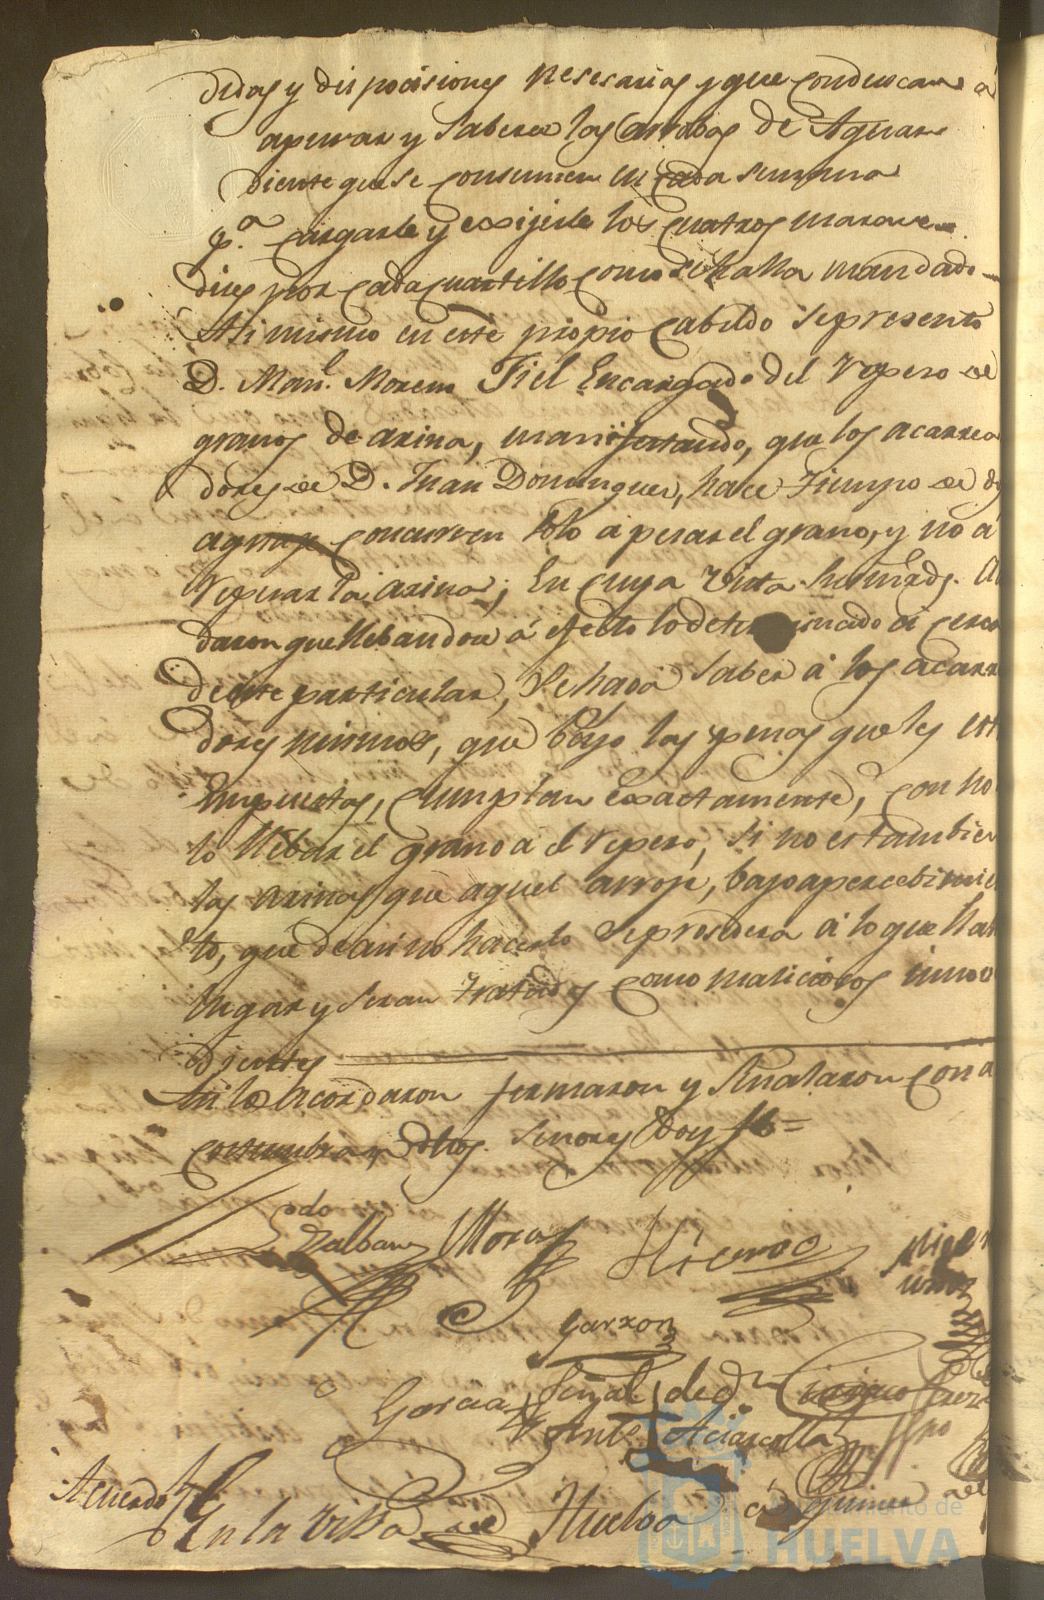 didas y disposiciones nesesarias y que conduscan a
apurar y saberse las arrobas de Aguar
diente que se consumieren en cada semana
p.ª cargarle y exijirle los cuatros marave
dises por cada cuartillo como se halla mandado
Asi mismo en este propio Cabildo se presentó
D. Man.l Moreno Fiel Encargado del Repeso de
granos de arina, manifestando, que los acarrea
dores de D. Juan Dominguez, hace tiempo de
concurren solo a pesar el grano, y no á
repesar la arina; En cuya vista Sus mrds. a
daron que llebandose á efecto lo determinado a cerca
de este particular, se haga saber á los acarr
dores mismos, que bajo las penas que les est
Impuestas, cumplan exactamente, con no
lo llebar el grano á el repeso, si no es tambien
las arinas que aquel arroje, bajo apercebimien
to, que de asi no hacerlo se prosedera á lo que halla
lugar y seran tratados como maliciosos inove
dientes
Asi lo Acordaron firmaron y señalaron con a
costumbra dhos. Señores Doy fe=
Moras
Garzon
Garcia Señal de D.n
Ante
Acuerdo
En la villa de Huelva á quince de
Ayuntamiento de
HUELVA